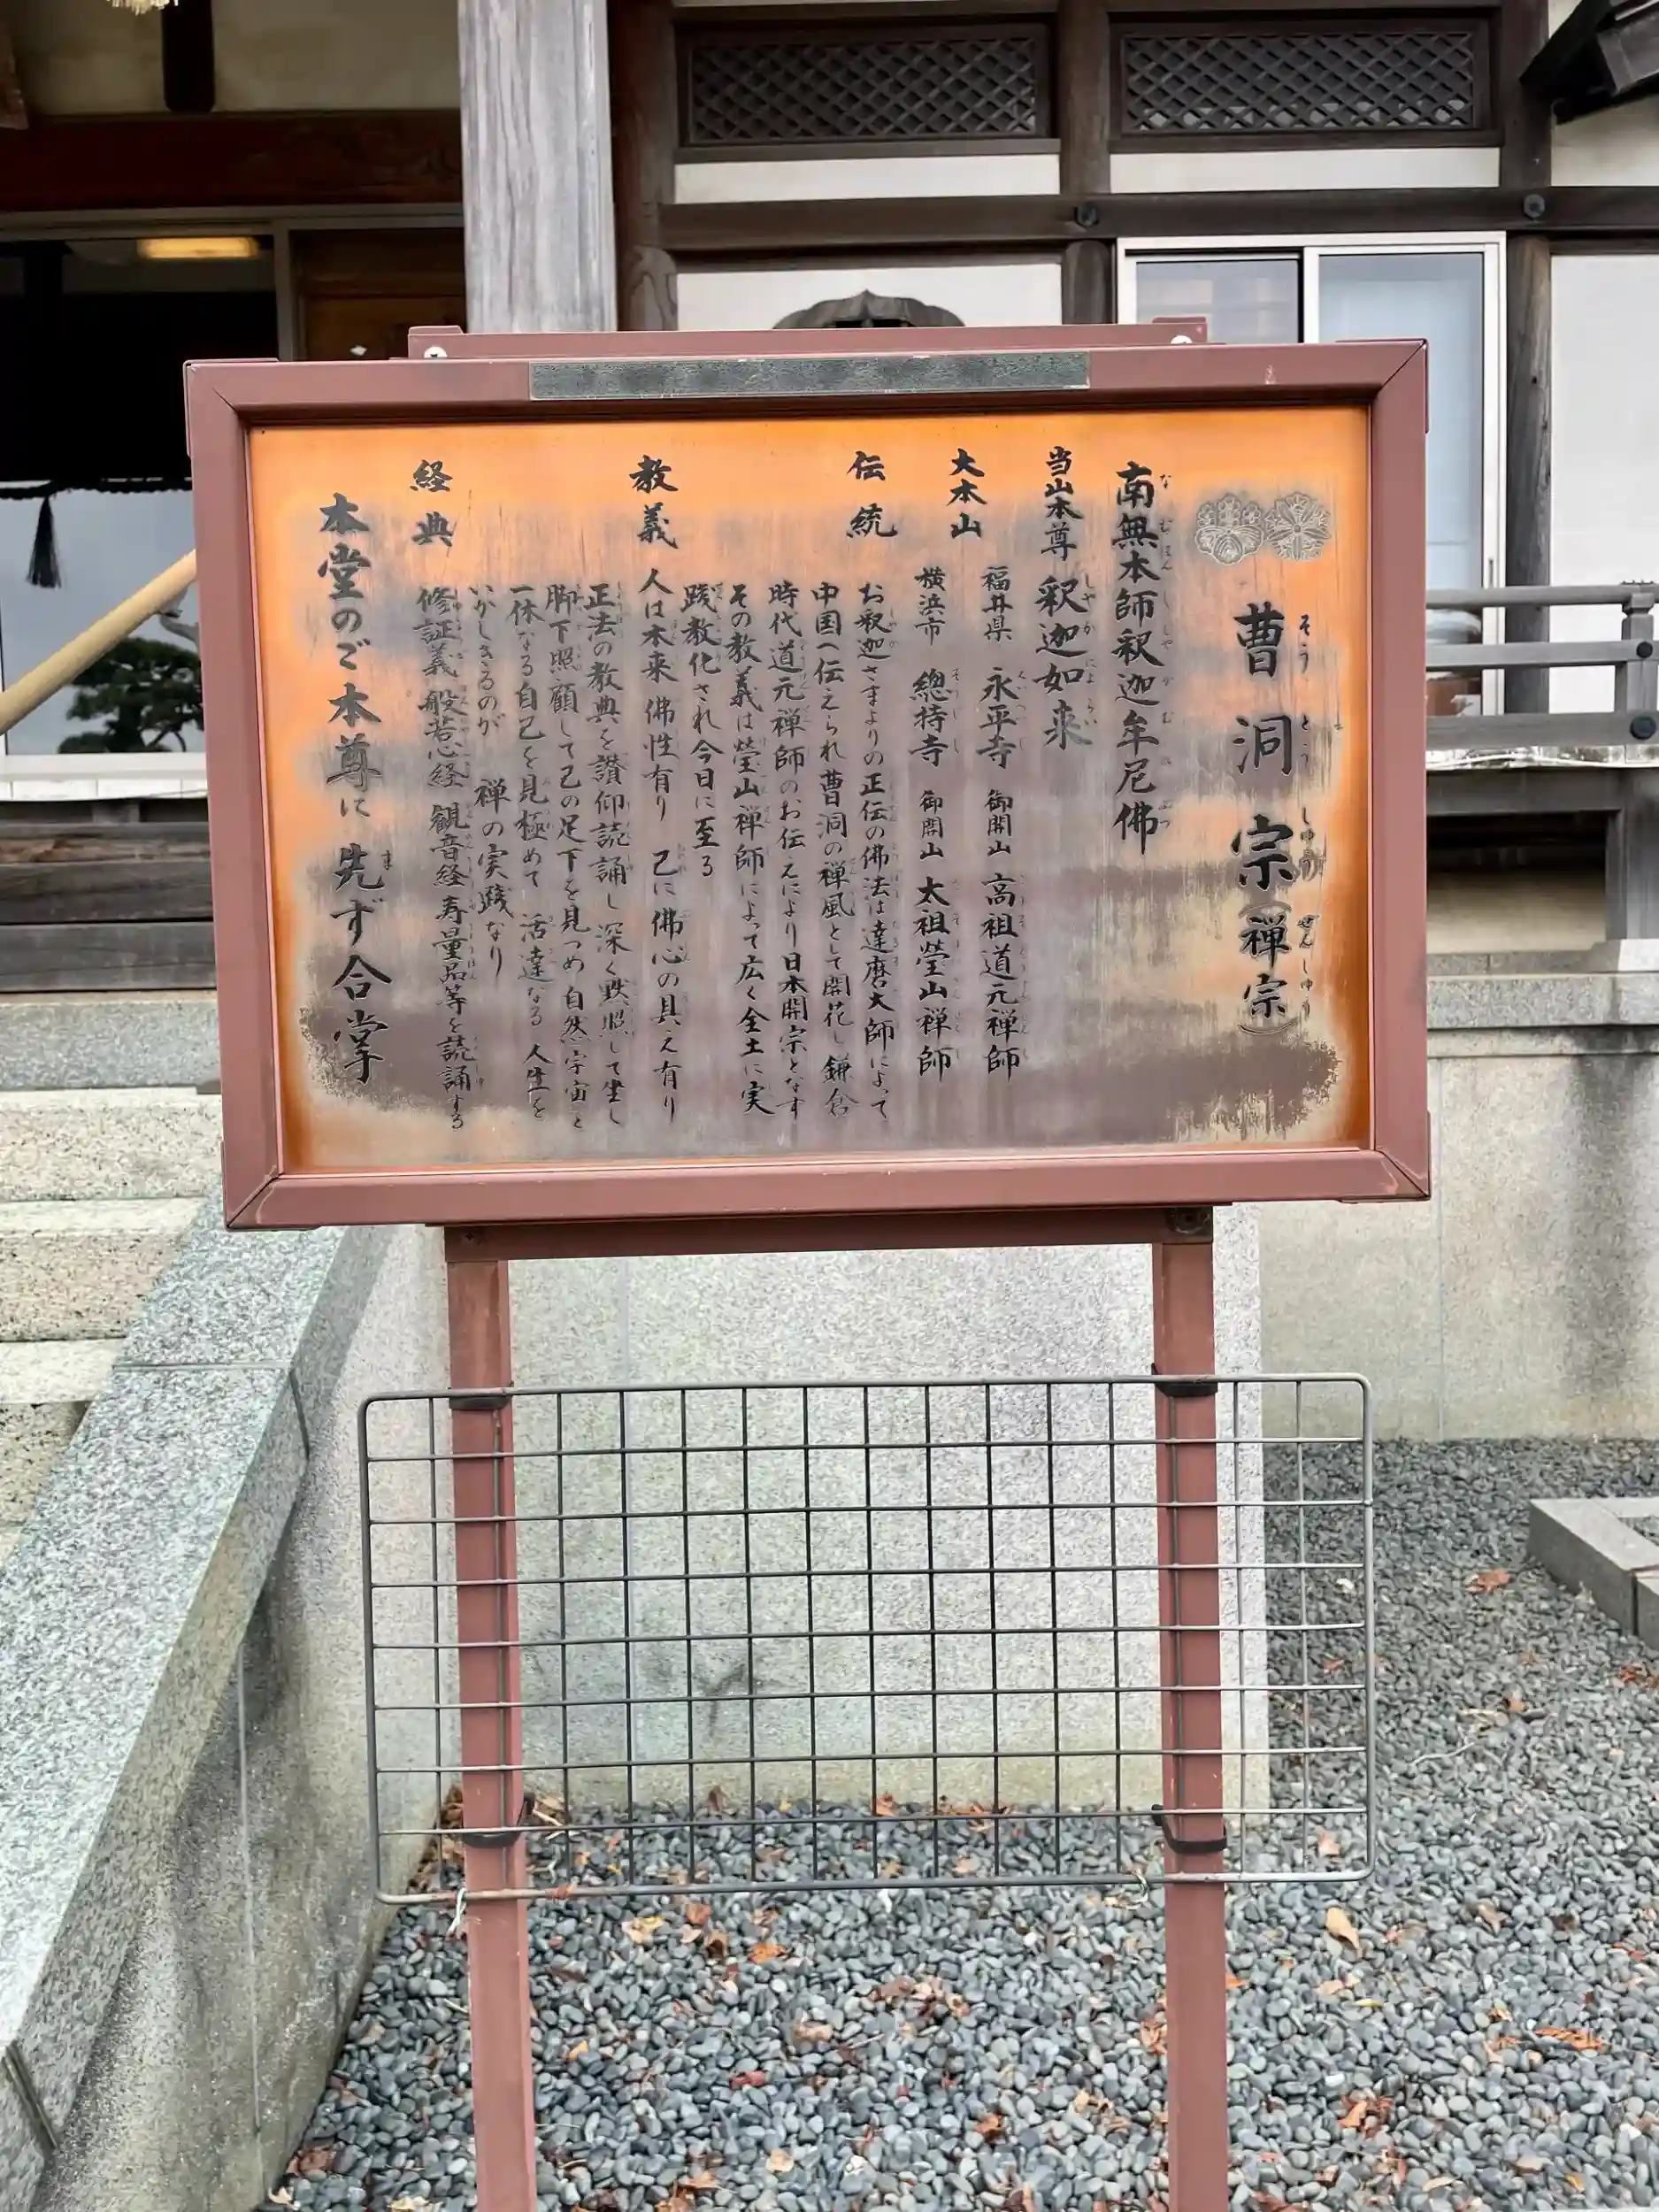 曹洞宗（禅宗）
南無本師釈迦牟尼佛
当山本尊 釈迦如来
大本山 福井県 永平寺 御開山 高祖道元禅師
横浜市 總持寺 御開山 太祖瑩山禅師
伝統 お釈迦さまよりの正伝の佛法は達磨大師によって
中国へ伝えられ曹洞の禅風として開花し鎌倉
時代道元禅師のお伝えにより日本開宗となす
その教義は瑩山禅師によって広く全土に実
践教化され今日に至る
教義 人は本来 佛性有り 己に佛心の具え有り
正法の教典を讃仰読誦し 深く黙照して坐し
脚下照顧して己の足下を見つめ 自然宇宙と
一体なる自己を見極めて 活達なる 人生を
いかしきるのが 禅の実践なり
経典 修証義 般若心経 観音経 寿量品等を読誦する
本堂のご本尊に 先ず合掌